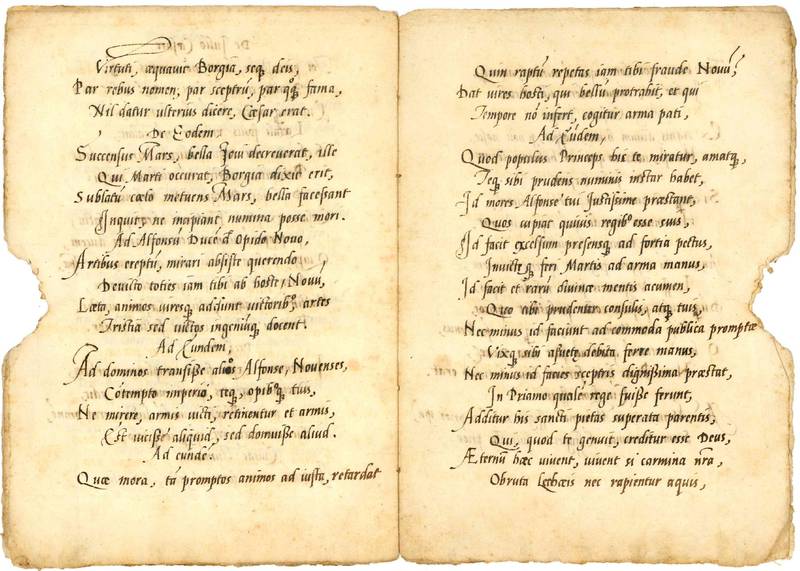 Virtuti, æquavit Borgia, seq; deis,
Par rebus nomen, par sceptrū, par q; fama,
Nil datur ulterius dicere, Cæsar erat.
De Eodem,
Successus Mars, bella Jovi decreverat, ille
Qui Marti occurat, Borgia dixit erit,
Sublatū cœlo metuens Mars, bella facessant
Inquit, ne incipiant numina posse mori.
Ad Alfonsū Ducē d Opido Novo,
Artibus ereptū, mirari absiste querendo
Devicto toties iam tibi ab hoste, Novū,
Læta, animos viresq; addunt victoribꝰ, artes
Tristia sed victos ingeniūq; docent.
Ad Eundem,
Ad dominos transiße alios Alfonse, Novenses,
Cōtempto imperio, teq; opibꝰq; tuis,
Ne mirere, armis victi, retinentur et armis,
Est viciße aliquid, sed domuiße aliud.
Ad eundē.
Quæ mora, tā promptos animos ad iusta, retardat
Quin raptū repetas iam tibi fraude Novū,
Dat vires hosti, qui bellū protrahit, et qui
Tempore nō infert, cogitur arma pati,
Ad Eūdem,
Quod populus Princeps hic te miratur, amatq;
Teq; sibi prudens numinis instar habet,
Id mores Alfonse tui Justißime præstant,
Quos cupiat quiuis regibꝰ esse suis,
Id facit excelsum presensq; ad fortia pectus,
Invicteq; feri Martis ad arma manus,
Id facit et rarū divinæ mentis acumen,
Quo tibi prudenter consulis, atq; tuis,
Nec minus id faciunt ad commoda publica promptæ
Vixq; sibi aßuetæ debita ferre manus,
Nec minus id facies sceptris dignißima præstat,
In Priamo qualē rege fuiße ferunt,
Additur his sancti pietas superata parentis,
Qui, quod te genuit, creditur esse Deus,
Æternū hæc vivent, vivent si carmina nrā,
Obruta Lethæis nec rapientur aquis,